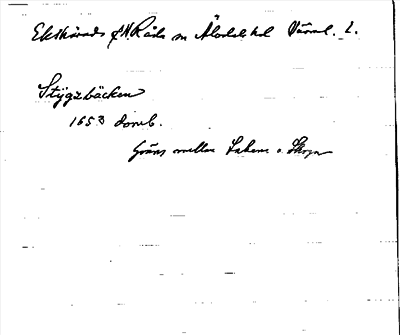 Ekshärads f. N. Råda sn Älvdals hd Värml. l.
Stygzbäcken
1653 domb.
Gräns mellan Sakene o. Skoga